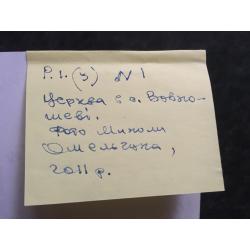 Р.1.(3) N 1
Церква в с. Вовко-
шеві.
Фото Миколи
Омельчука,
2011 р.